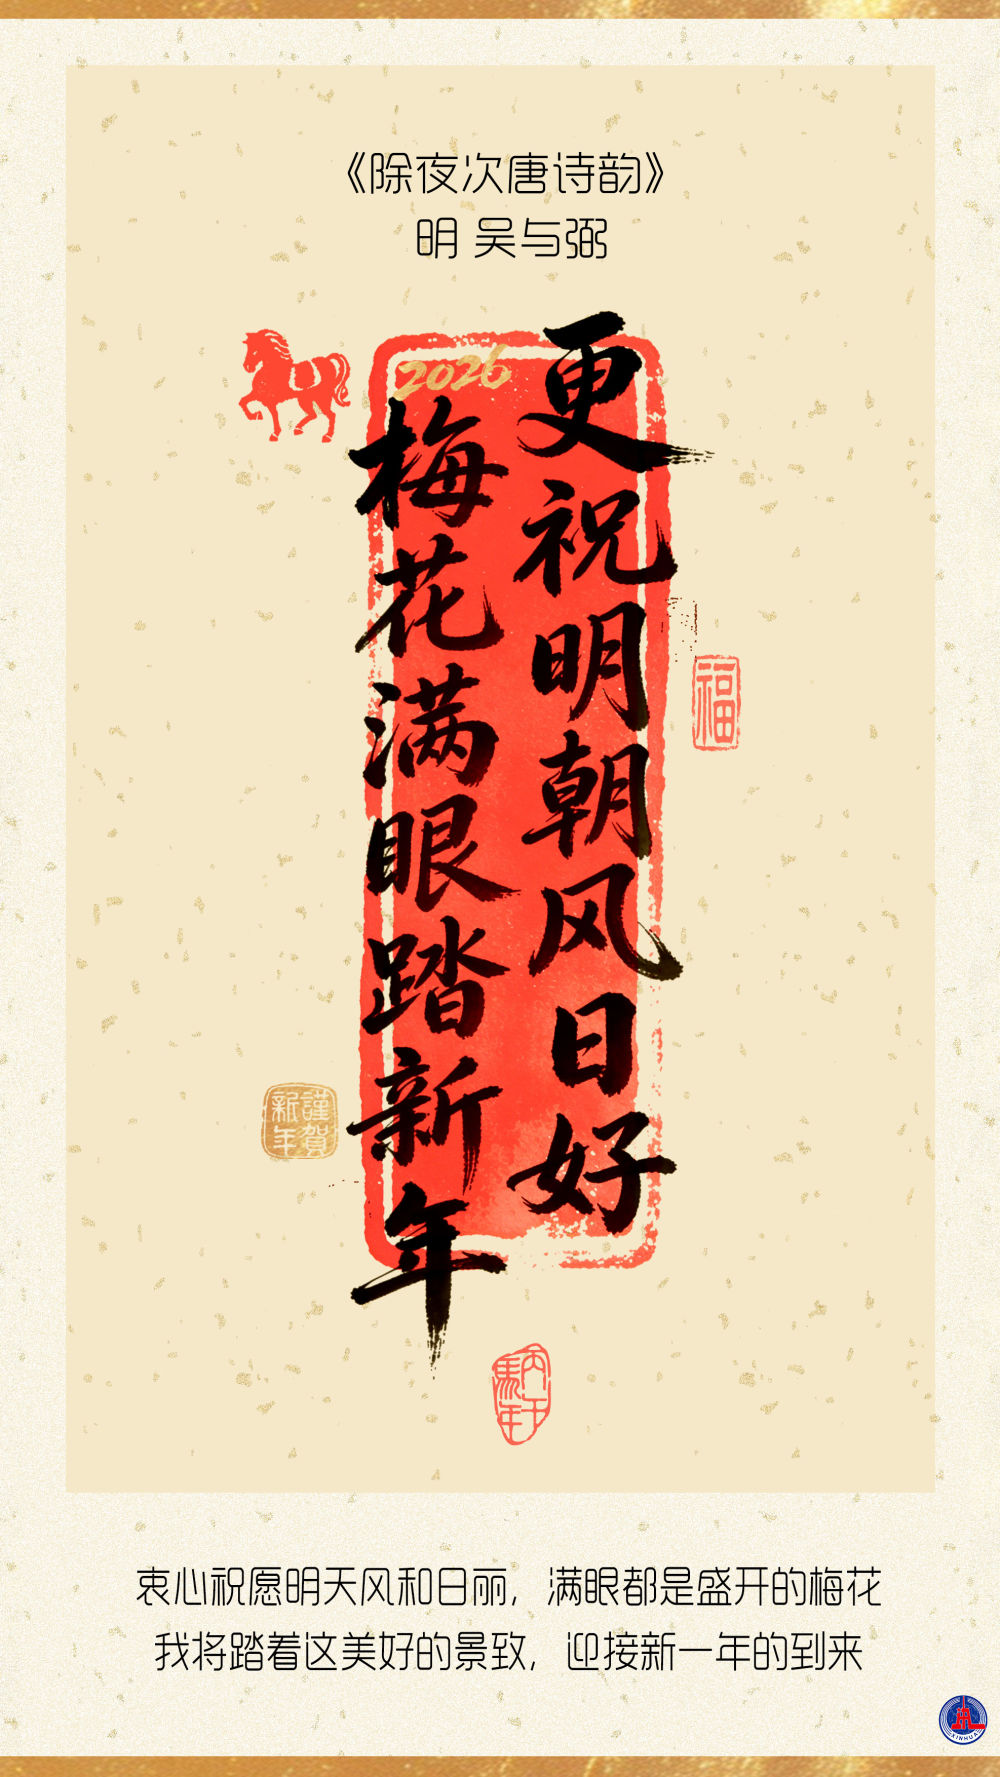 《除夜次唐诗韵》
明 吴与弼
2026
更祝明朝风日好
梅花满眼踏新年
福
謹賀
新年
丙午
馬年
衷心祝愿明天风和日丽，满眼都是盛开的梅花
我将踏着这美好的景致，迎接新一年的到来
XINHUA